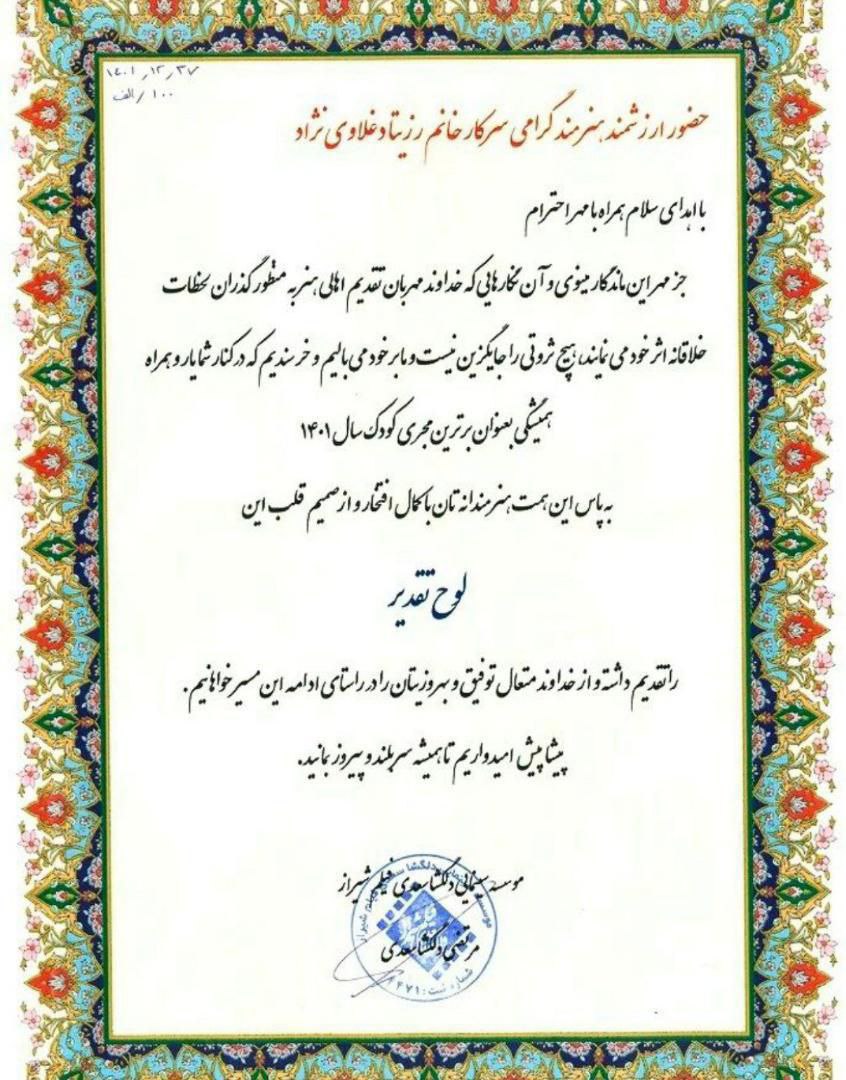 ۱۴۰۱٫۱۲٫۲۷
۱۰۰/الف
حضور ارزشمند هنرمند گرامی سرکار خانم رزیتا دغلاوی نژاد
با اهدای سلام همراه با مهر احترام
جز مهر این ماندگار مینوی و آن نگارهایی که خداوند مهربان تقدیم اهالی هنر به منظور گذران لحظات
خلاقانه اثر خود می نمایند، هیچ ثروتی را جایگزین نیست و ما بر خود می بالیم و خرسندیم که در کنار شما یار و همراه
همیشگی بعنوان برترین مجری کودک سال ۱۴۰۱
به پاس این همت هنرمندانه تان با کمال افتخار و از صمیم قلب این
لوح تقدیر
را تقدیم داشته و از خداوند متعال توفیق و بهروزیتان را در راستای ادامه این مسیر خواهانیم.
پیشاپیش امیدواریم تا همیشه سربلند و پیروز بمانید.
موسسه سینمایی دلگشا سعدی فیلم شیراز
مرتضی دلگشا سعدی
شماره ثبت: